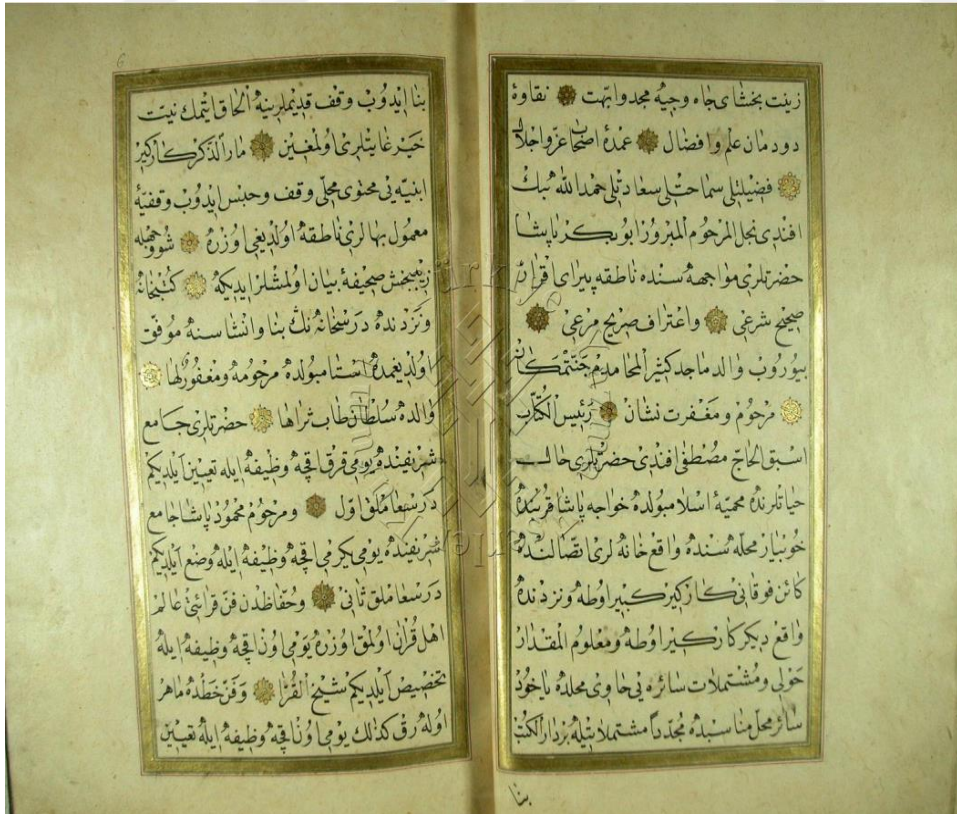 زینت بخشای جاه وجیه مجد و ابهت نقاوۀ
دودمان علم و افضال عمدۀ اصحاب عز و اجلال
فضیلتلی سماحتلی سعادتلی حمد الله بك
افندی نجل المرحوم المبرور ابو بكر پاشا
حضرتلری مواجهه سنده ناطقه پیرای اقرار
صحیح شرعی و اعتراف صریح مرعی
بیوروب والد ماجد كثیر المحامدم جنتمكان
مرحوم و مغفرت نشان رئیس الكتاب
اسبق الحاج مصطفی افندی حضرتلری حال
حیاتلرنده محمیۀ اسلامبولده خواجه پاشا قربنده
خوبیار محله سنده واقع خانه لری اتصالنده
كائن فوقانی كارگیر كبیر اوطه و نزدنده
واقع دیگر كارگیر اوطه و معلوم المقدار
حولی و مشتملات سائره یی حاوی محلده یاخود
سائر محل مناسبده مجددا مشتملاتیله بر دار الكتب
بنا
6
بنا ایدوب وقف قدیملرینه الحاق ایتمك نیت
خیر غایتلری اولمغین مار الذكر كارگیر
ابنیه یی محتوی محلی وقف و حبس ایدوب وقفیۀ
معمول بهالری ناطقه اولدیغی اوزره شو وجهله
زیببخش صحیفۀ بیان اولمشلر ایدیكه كتبخانه
و نزدنده درسخانه نك بنا و انشاسنه موفق
اولدیغمده استامبولده مرحومه و مغفور لها
والده سلطان طاب ثراها حضرتلری جامع
شریفنده یومی قرق اقچه وظیفه ایله تعیین ایلدیكم
درسعاملق اول و مرحوم محمود پاشا جامع
شریفنده یومی یكرمی اقچه وظیفه ایله وضع ایلدیكم
درسعاملق ثانی و حفاظدن فن قرائتی عالم
اهل قرآن اولمق اوزره یومی اون اقچه وظیفه ایله
تخصیص ایلدیكم شیخ القرا و فن خطده ماهر
اوله رق كذلك یومی اون اقچه وظیفه ایله تعیین